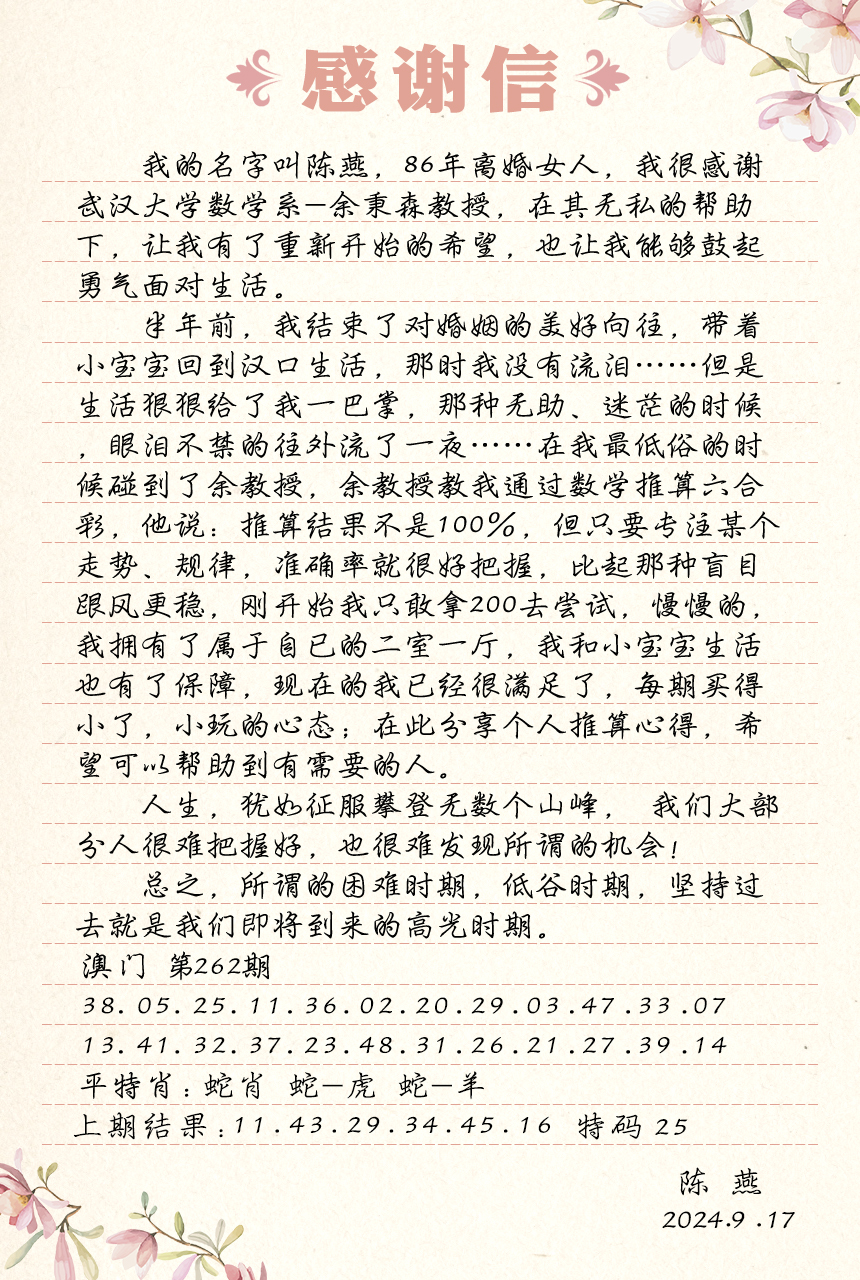 感谢信
我的名字叫陈燕，86年离婚女人，我很感谢
武汉大学数学系—余秉森教授，在其无私的帮助
下，让我有了重新开始的希望，也让我能够鼓起
勇气面对生活。
半年前，我结束了对婚姻的美好向往，带着
小宝宝回到汉口生活，那时我没有流泪……但是
生活狠狠给了我一巴掌，那种无助、迷茫的时候
，眼泪不禁的往外流了一夜……在我最低俗的时
候碰到了余教授，余教授教我通过数学推算六合
彩，他说：推算结果不是100%，但只要专注某个
走势、规律，准确率就很好把握，比起那种盲目
跟风更稳，刚开始我只敢拿200去尝试，慢慢的，
我拥有了属于自已的二室一厅，我和小宝宝生活
也有了保障，现在的我已经很满足了，每期买得
小了，小玩的心态；在此分享个人推算心得，希
望可以帮助到有需要的人。
人生，犹如征服攀登无数个山峰， 我们大部
分人很难把握好，也很难发现所谓的机会！
总之，所谓的困难时期，低谷时期，坚持过
去就是我们即将到来的高光时期。
澳门 第262期
38.05.25.11.36.02.20.29.03.47.33.07
13.41.32.37.23.48.31.26.21.27.39.14
平特肖：蛇肖 蛇—虎 蛇—羊
上期结果：11.43.29.34.45.16 特码 25
陈 燕
2024.9.17